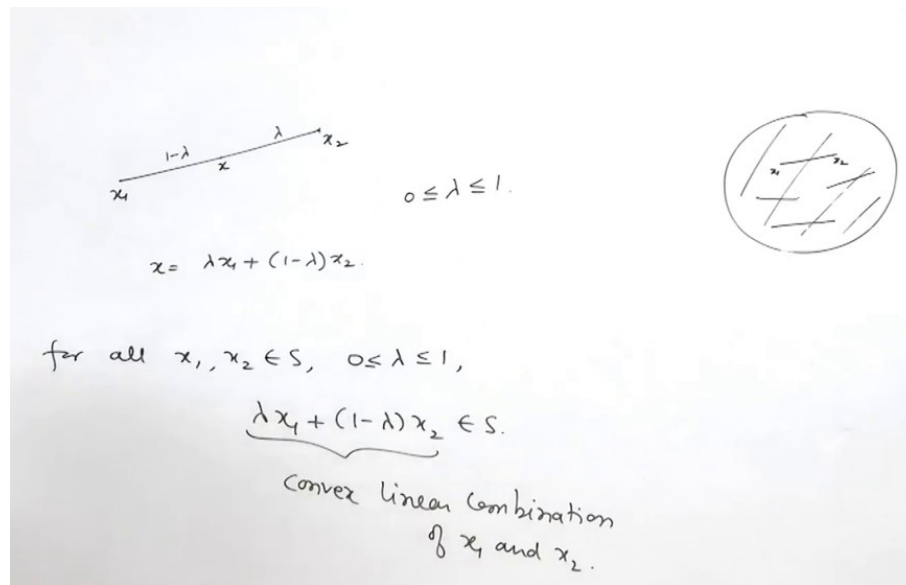 1-λ λ
x₁ x x₂
0 ≤ λ ≤ 1.
x₁ x₂
x = λx₁ + (1-λ)x₂.
for all x₁, x₂ ∈ S, 0 ≤ λ ≤ 1,
λx₁ + (1-λ)x₂ ∈ S.
Convex linear Combination
of x₁ and x₂.